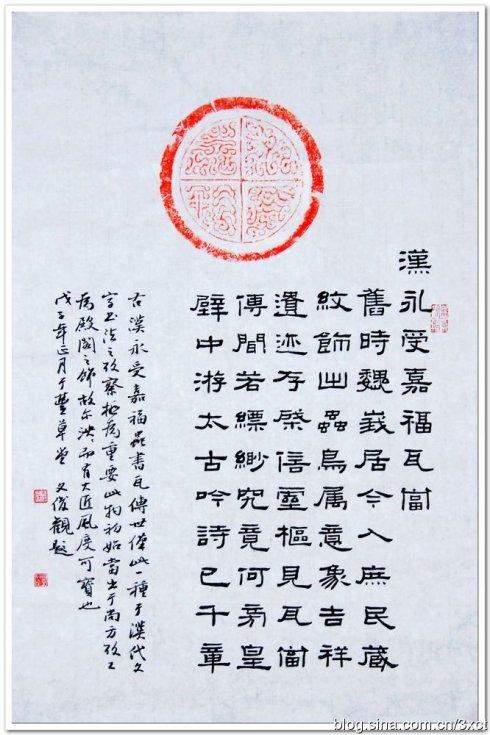 漢永受嘉福瓦當
舊時巍峩居今入庶民藏
紋飾出蟲鳥属意象吉祥
遺迹存棨信靈樞見瓦當
傳聞若縹緲究竟何帝皇
壁中游太古吟詩已千章
右漢永受嘉福蟲書瓦傳世僅此一種于漢代文
字書法之攷察極為重要此物初始當出于尚方攷工
為殿閣之飾故尔洪 有大匠風度可寶也
戊子年正月于豐草堂 又俊觀題
blog.sina.com.cn/3xct